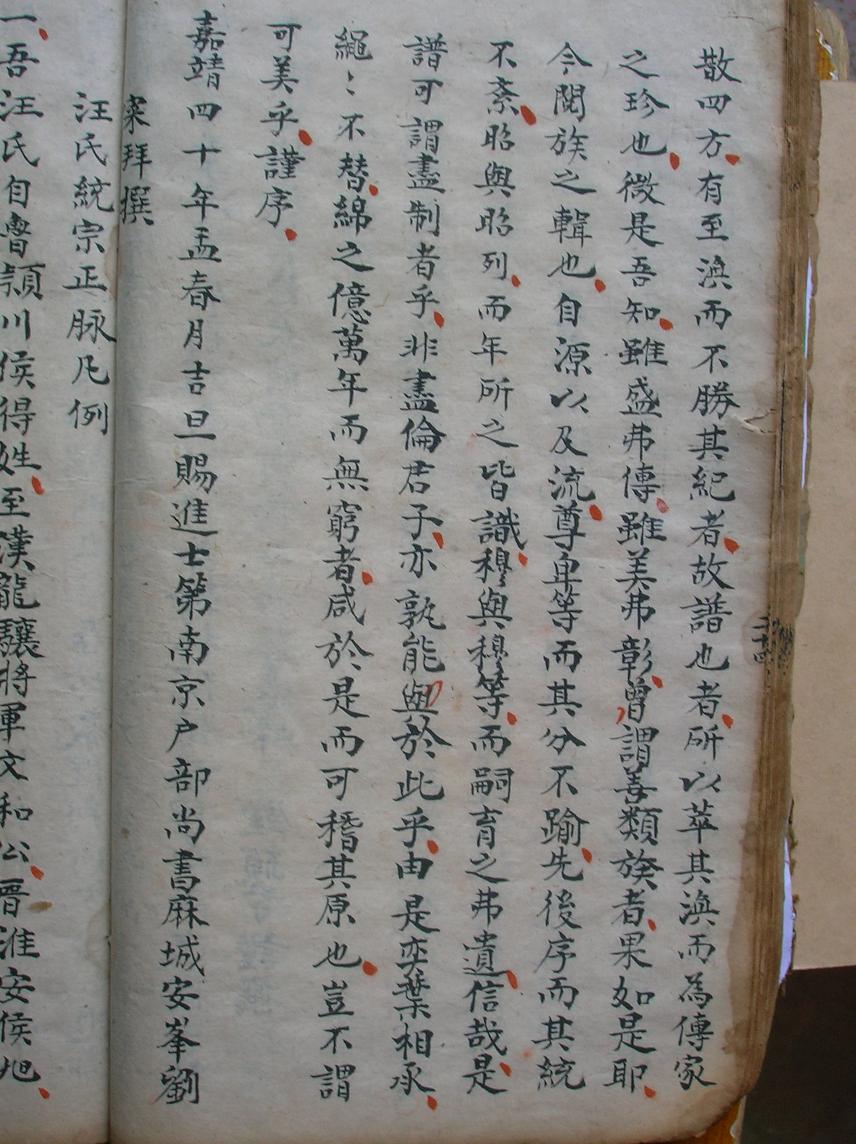 散四方有至渙而不勝其紀者故譜也者所以萃其渙而為傳家
之珍也微是吾知雖盛弗傳雖美弗彰曾謂善類族者果如是耶
今閱族之輯也自源以及流尊卑等而其分不踰先後序而其統
不紊昭與昭列而年所之皆識穆與穆等而嗣育之弗遺信哉是
譜可謂盡制者乎非盡倫君子亦孰能與於此乎由是奕葉相承
繩〻不替綿之億萬年而無窮者咸於是而可稽其原也豈不謂
可美乎謹序
嘉靖四十年孟春月吉旦賜進士第南京户部尚書麻城安峯劉
寀拜撰
汪氏統宗正脉凡例
一吾汪氏自魯頴川侯得姓至漢龍驤將軍文和公晋淮安侯旭
二十四